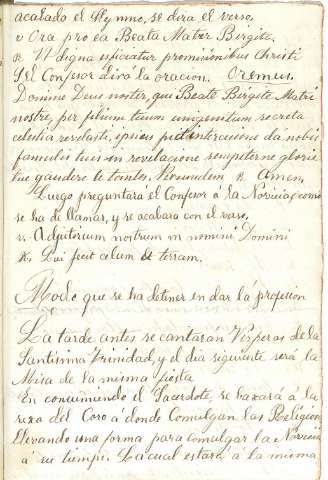 acabado el Hymno, se dira el verso,
v Ora pro ea Beata Mater Birgite,
R. Vt digna efficiatur promisionibus Christi
Y el Confesor dira la oracion. Oremus,
Domine Deus noster, qui Beate Birgite Matri
nostre, per filium tuum unigenitum secreta
celestia revelasti, ipsius pia intercecione da nobis
famulis tuis in revelacione sempiterne glorie
tue gaudere letantes. Amen,
Luego preguntará el Confesor á la Novicia, como
se ha de llamar, y se acabara con el verso,
v. Adjutorium nostrum in nomini Domini
R. Qui fecit celum & terram.
Modo que se ha detener en dar la profesion
La tarde antes se cantarán Visperas de la
Santisima Trinidad, y el dia siguiente será la
Misa de la misma fiesta
En consumiendo el Sacerdote, se baxará á la
rexa del Coro á donde Comulgan las Religiosas
Llevando una forma para comulgar la Novicia
á su tiempo. La cual estará á la misma